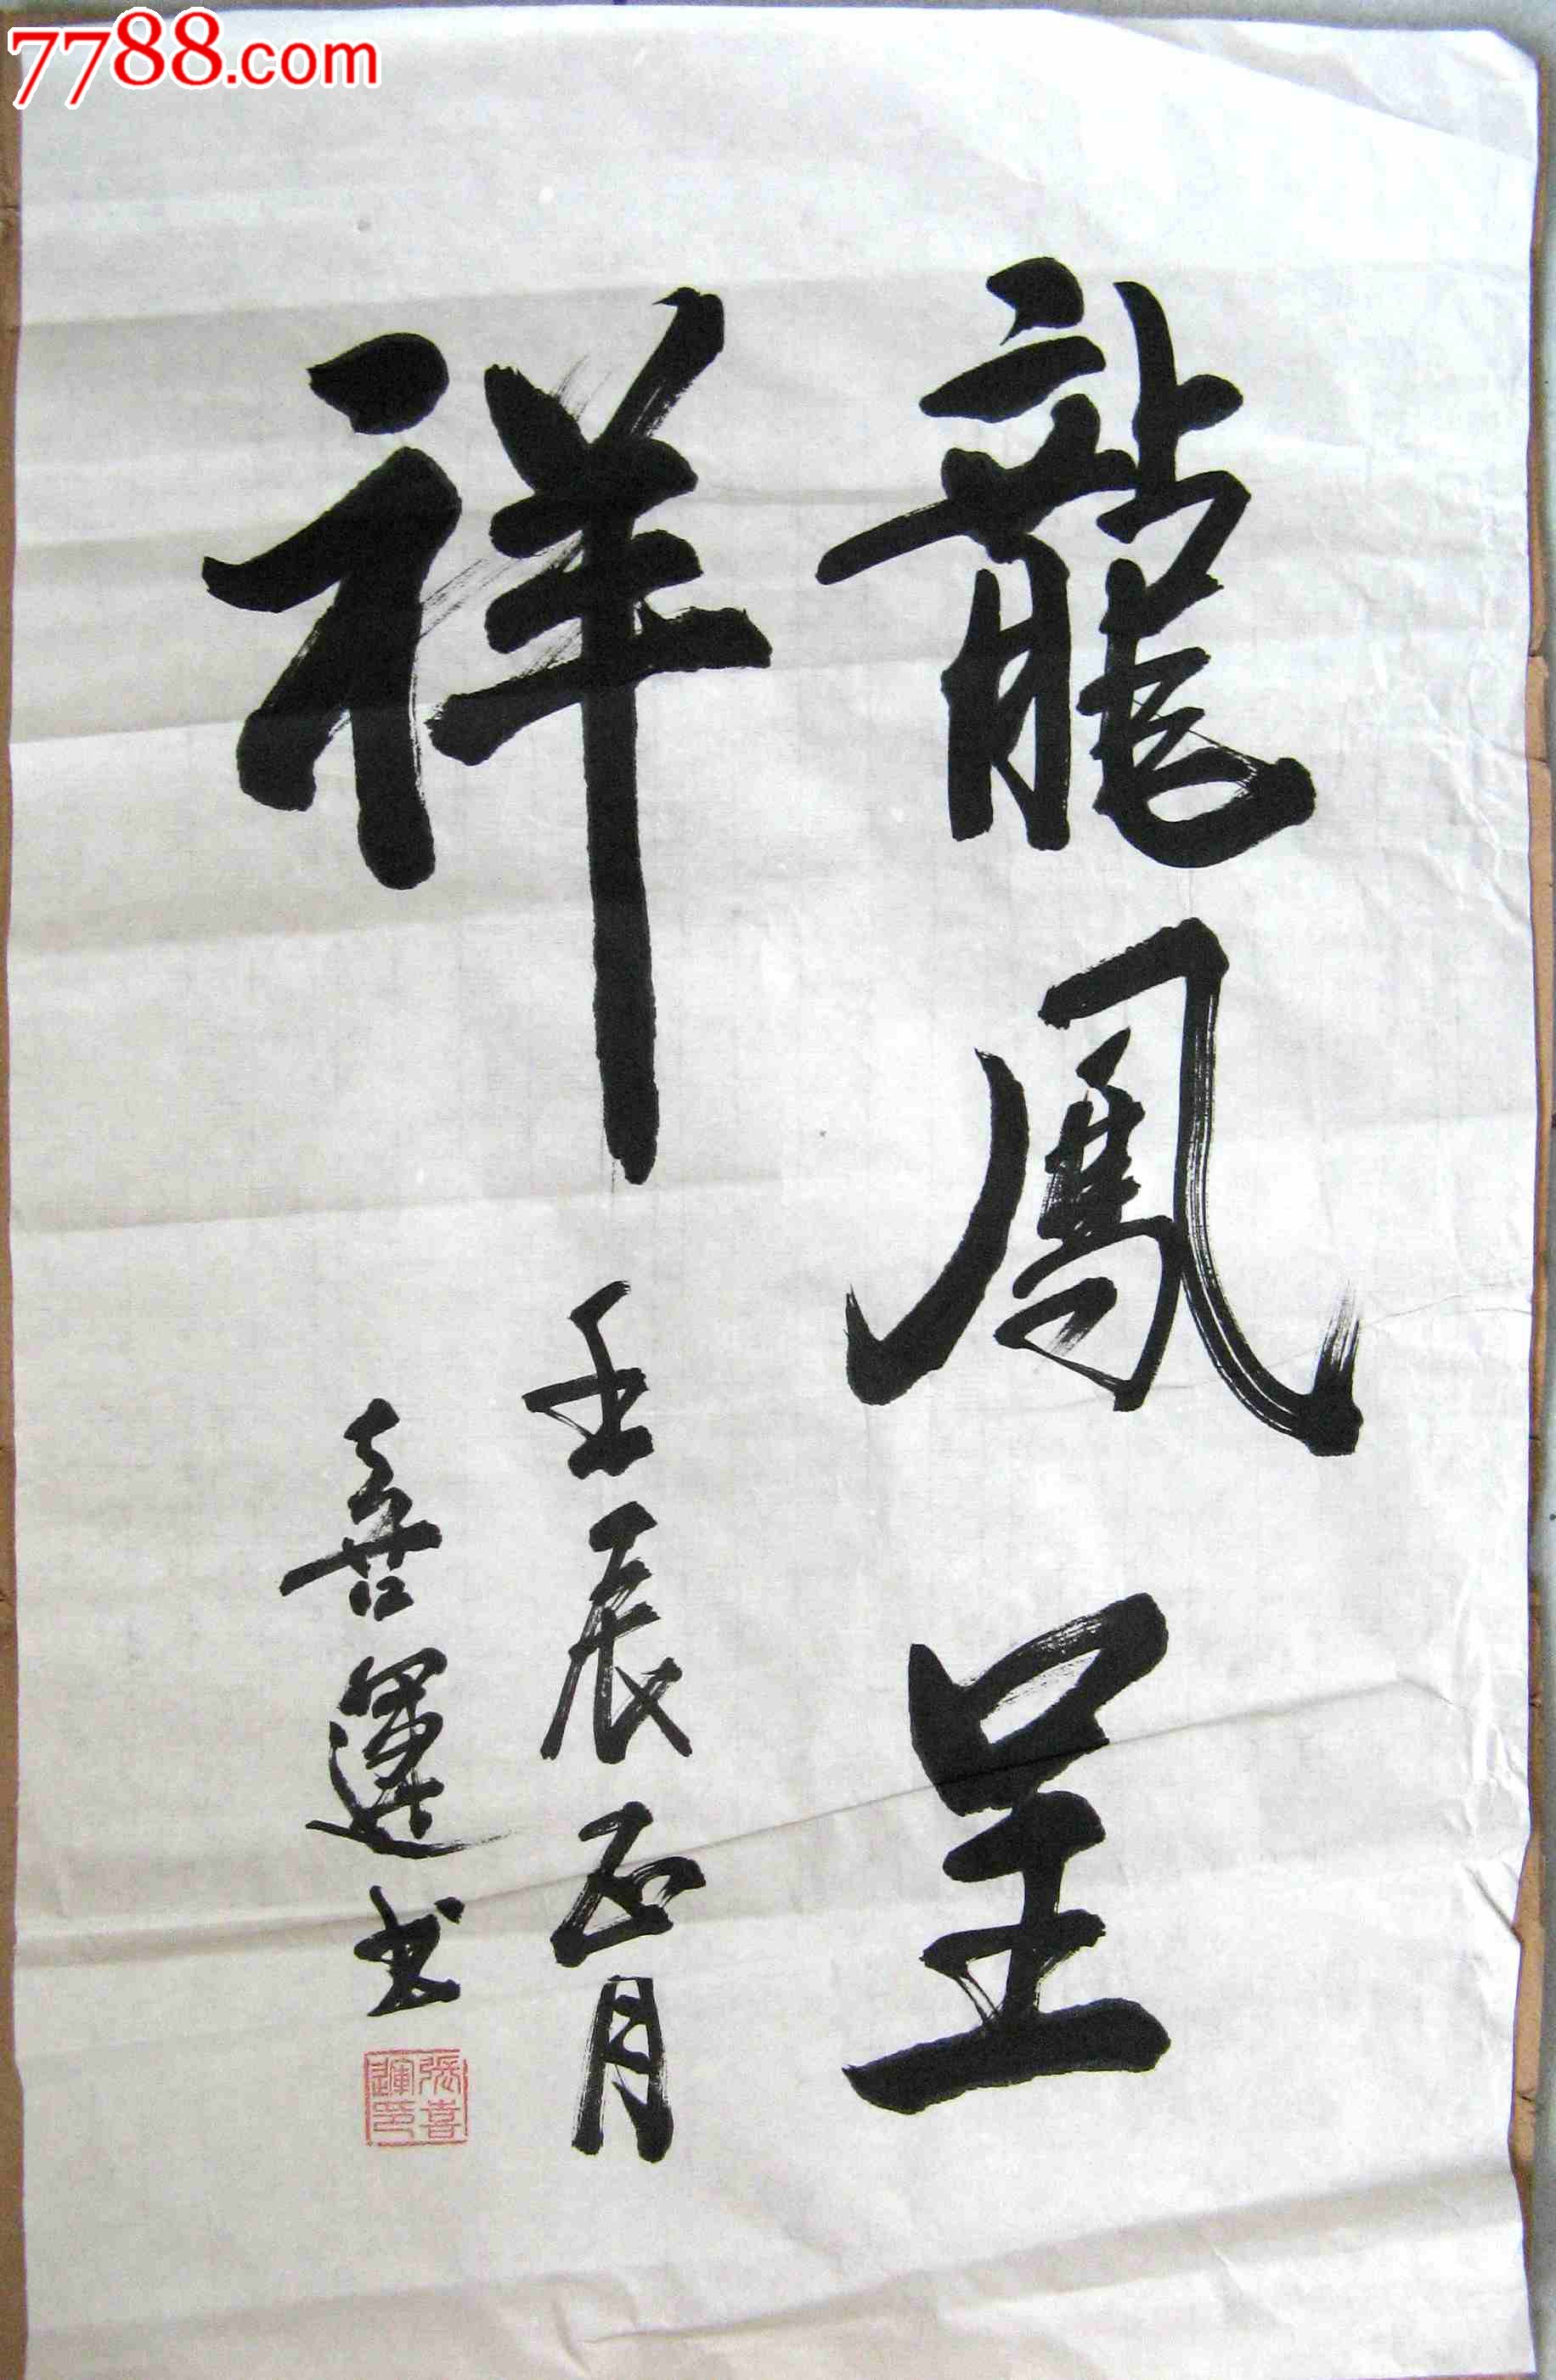 7788.com
龍鳳呈
祥
壬辰正月
喜運书
張喜
運印